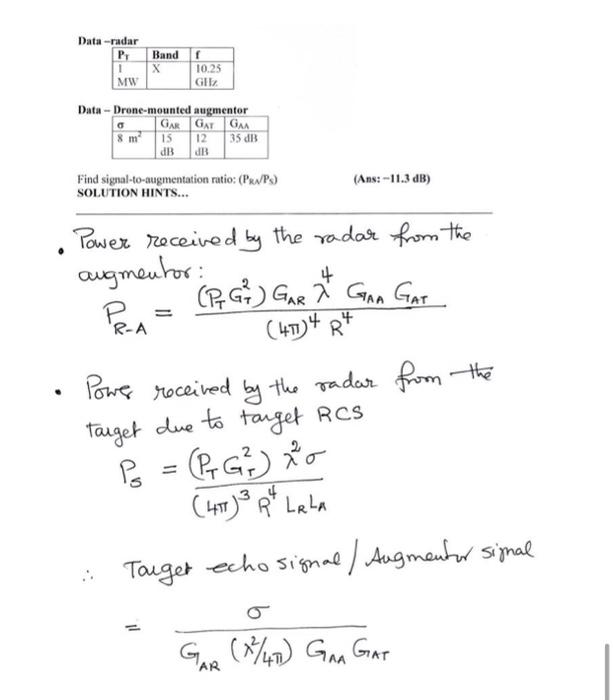 Data –radar
P_T Band f
1 MW X 10.25 GHz
Data – Drone-mounted augmentor
σ G_AR G_AT G_AA
8 m² 15 dB 12 dB 35 dB
Find signal-to-augmentation ratio: (P_RA/P_S) (Ans: –11.3 dB)
SOLUTION HINTS...
• Power received by the radar from the
augmentor:
P_R-A = (P_T G_T²) G_AR λ⁴ G_AA G_AT / (4π)⁴ R⁴
• Power received by the radar from the
target due to target RCS
P_S = (P_T G_T²) λ² σ / (4π)³ R⁴ L_R L_A
∴ Target echo signal / Augmentor signal
= σ / G_AR (λ²/4π) G_AA G_AT